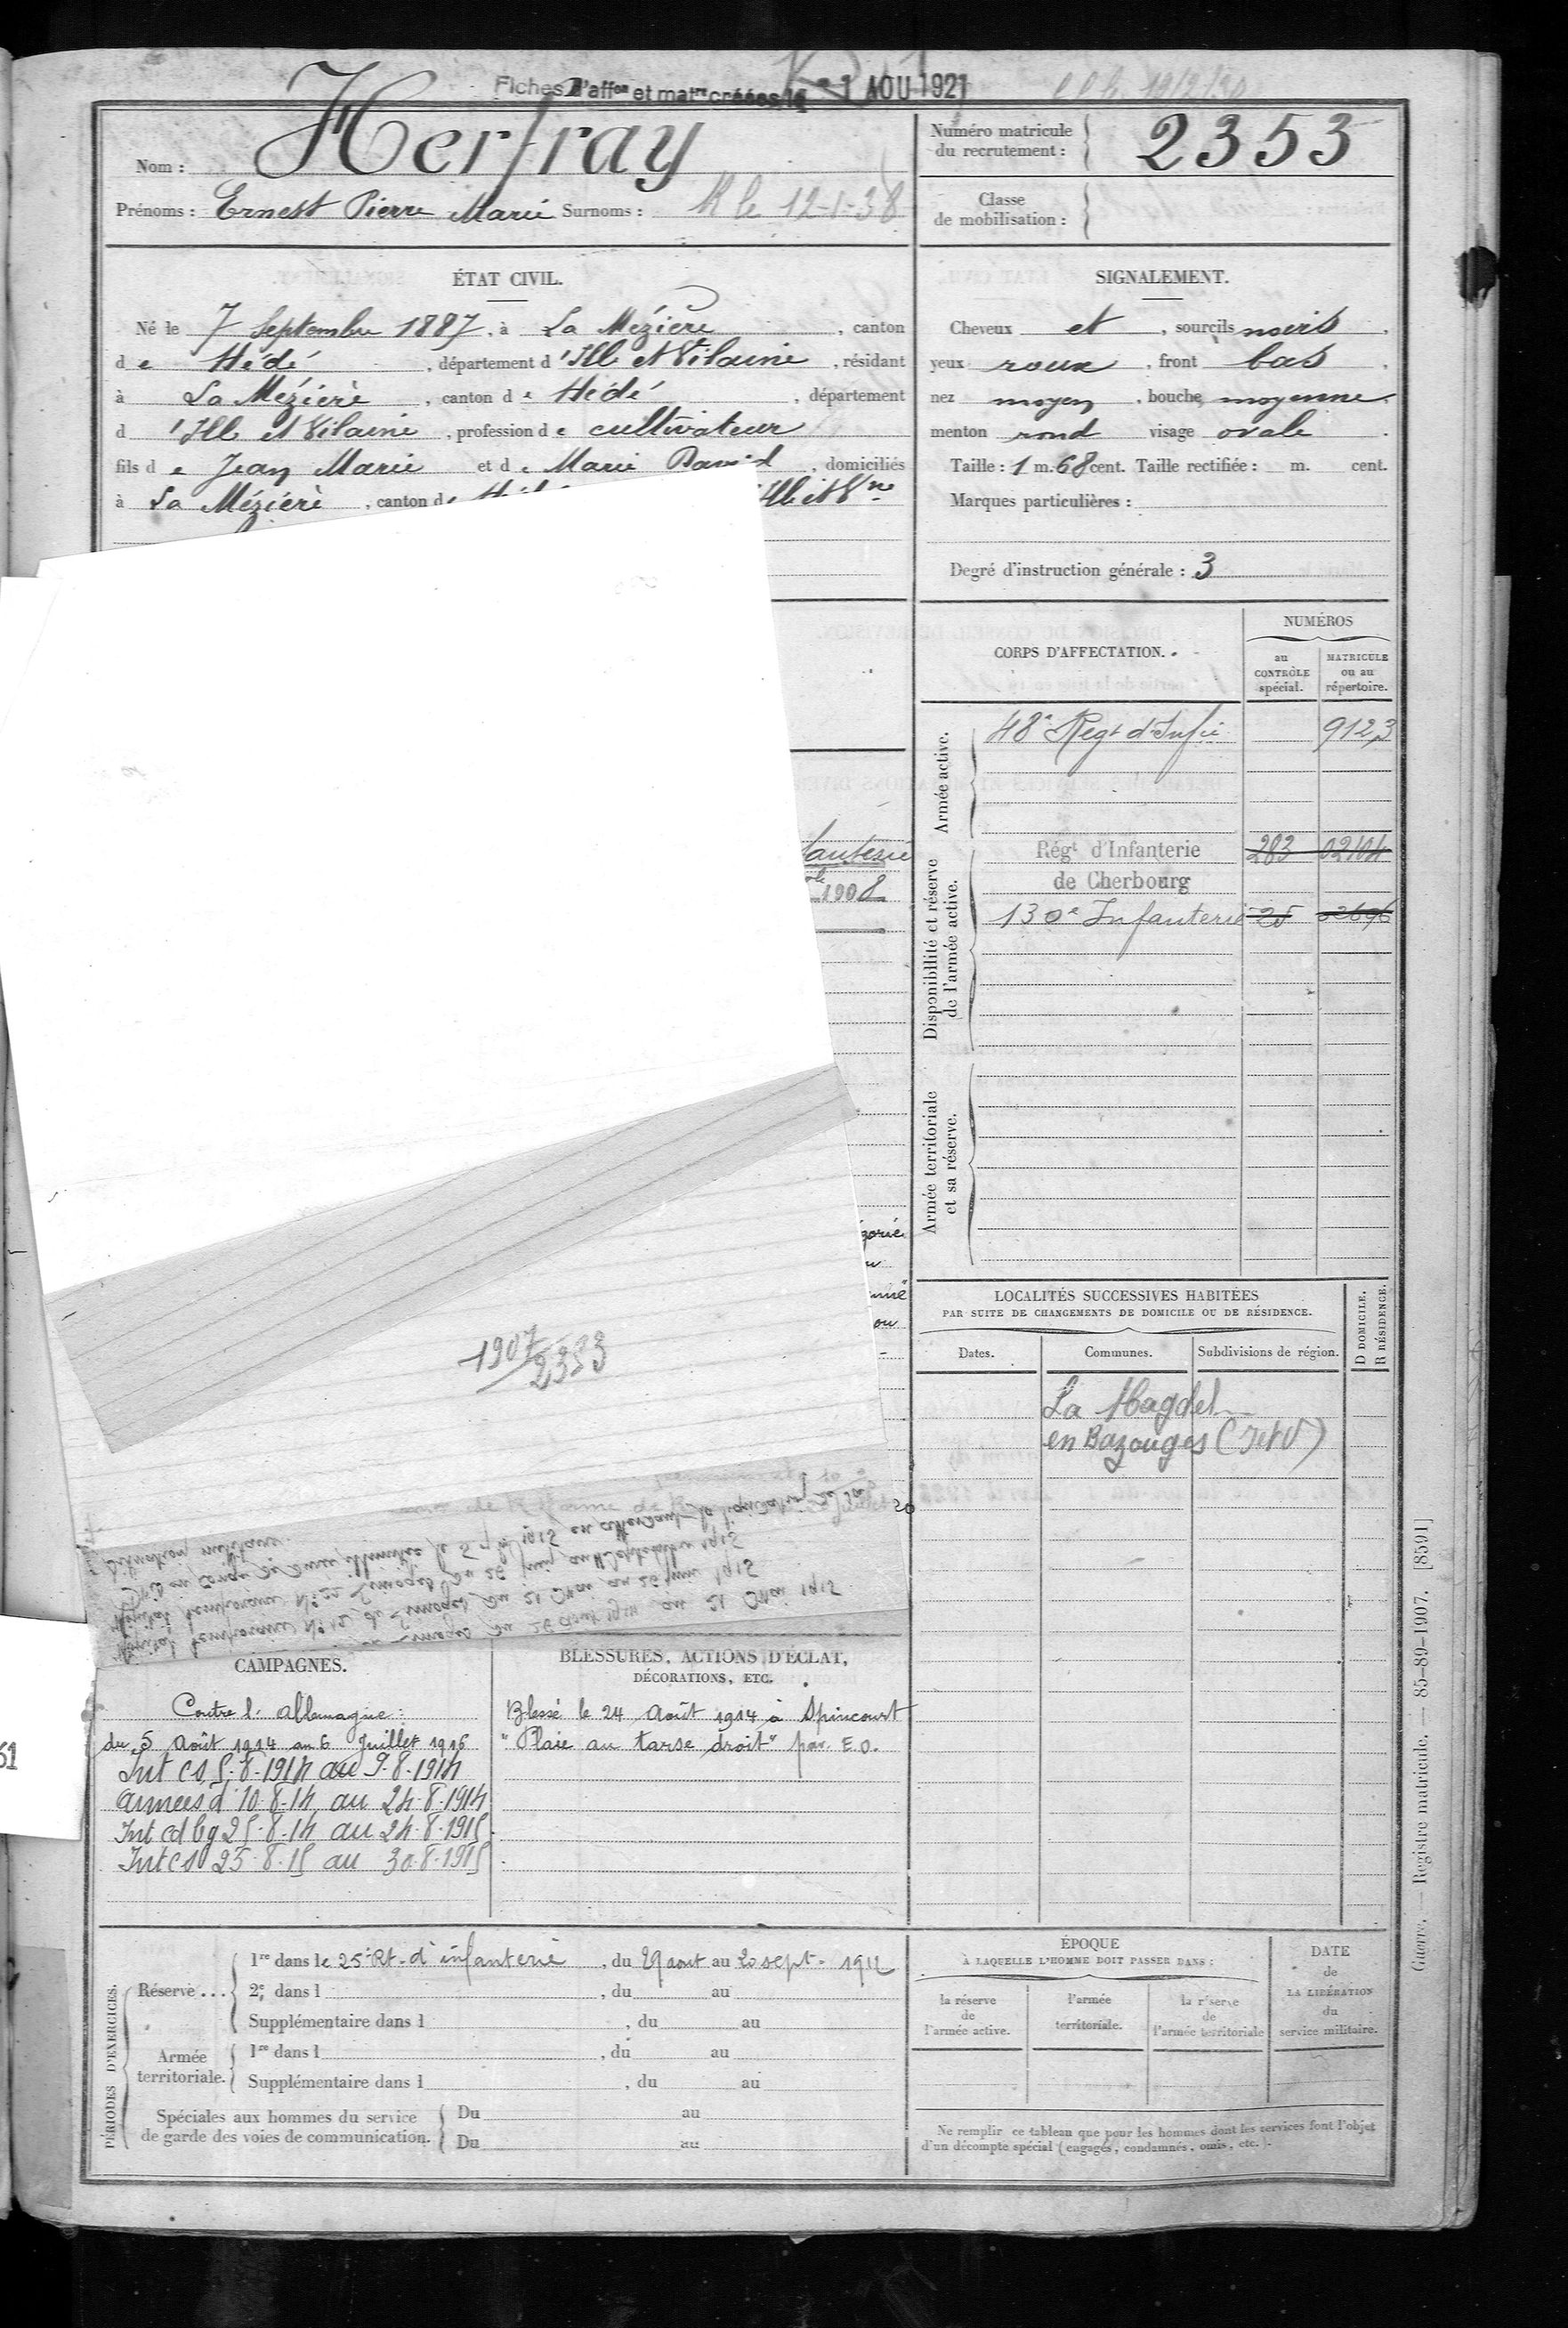 Fiches d'affon et matre créées le - 1 AOU 1921
Nom : Herfray
Prénoms : Ernest Pierre Marie Surnoms : R le 12-1-38
Numéro matricule
du recrutement : 2353
Classe
de mobilisation :
ÉTAT CIVIL.
Né le 7 Septembre 1887, à La Mézière, canton
de Hédé, département d'Ille et Vilaine, résidant
à La Mézière, canton de Hédé, département
d'Ille et Vilaine, profession de cultivateur
fils de Jean Marie et de Marie, domiciliés
à La Mézière, canton de Ille et Vne
SIGNALEMENT.
Cheveux et, sourcils noirs,
yeux roux, front bas,
nez moyen, bouche moyenne,
menton rond visage ovale.
Taille : 1 m. 68 cent. Taille rectifiée : m. cent.
Marques particulières :
Degré d'instruction générale : 3
CORPS D'AFFECTATION.
NUMÉROS
au
CONTRÔLE
spécial.
MATRICULE
ou au
répertoire.
Armée active.
48e Regt d'Infie 9123
Disponibilité et réserve
de l'armée active.
Régt d'Infanterie 283 02104
de Cherbourg
130e Infanterie 25
Armée territoriale
et sa réserve.
fanterie
1908
gorie
ou
1907
2353
LOCALITÉS SUCCESSIVES HABITÉES
PAR SUITE DE CHANGEMENTS DE DOMICILE OU DE RÉSIDENCE.
D DOMICILE.
R RÉSIDENCE.
Dates.
Communes.
Subdivisions de région.
La Magdel
en Bazouges (I et V)
situation militaire.
Hôpital temporaire No 22 Limoges du 26 juin au septembre 1915
Hôpital temporaire No 12 de Limoges du 21 Mai au 26 juin 1915
Limoges du 26 Août 1914 au 21 Mai 1915
CAMPAGNES.
Contre l'Allemagne :
du 5 Août 1914 au 6 Juillet 1916
Int CS 5-8-1914 au 9-8-1914
Armées d 10-8-14 au 24-8-1914
Int cd bg 25-8-14 au 24-8-1915
Int CS 25-8-15 au 30-8-1915
BLESSURES, ACTIONS D'ÉCLAT,
DÉCORATIONS, ETC.
Blessé le 24 Août 1914 à Spincourt
"Plaie au tarse droit" par E.O.
PÉRIODES D'EXERCICES.
Réserve ...
1re dans le 25e Rt. d'infanterie, du 29 aout au 20 sept. 1912
2e dans l, du au
Supplémentaire dans l, du au
Armée
territoriale.
1re dans l, du au
Supplémentaire dans l, du au
Spéciales aux hommes du service
de garde des voies de communication.
Du au
Du au
ÉPOQUE
À LAQUELLE L'HOMME DOIT PASSER DANS :
la réserve
de
l'armée active.
l'armée
territoriale.
la réserve
de
l'armée territoriale
DATE
de
LA LIBÉRATION
du
service militaire.
Ne remplir ce tableau que pour les hommes dont les services font l'objet
d'un décompte spécial (engagés, condamnés, omis, etc.).
Guerre. — Registre matricule. — 85-89-1907. [8591]
61